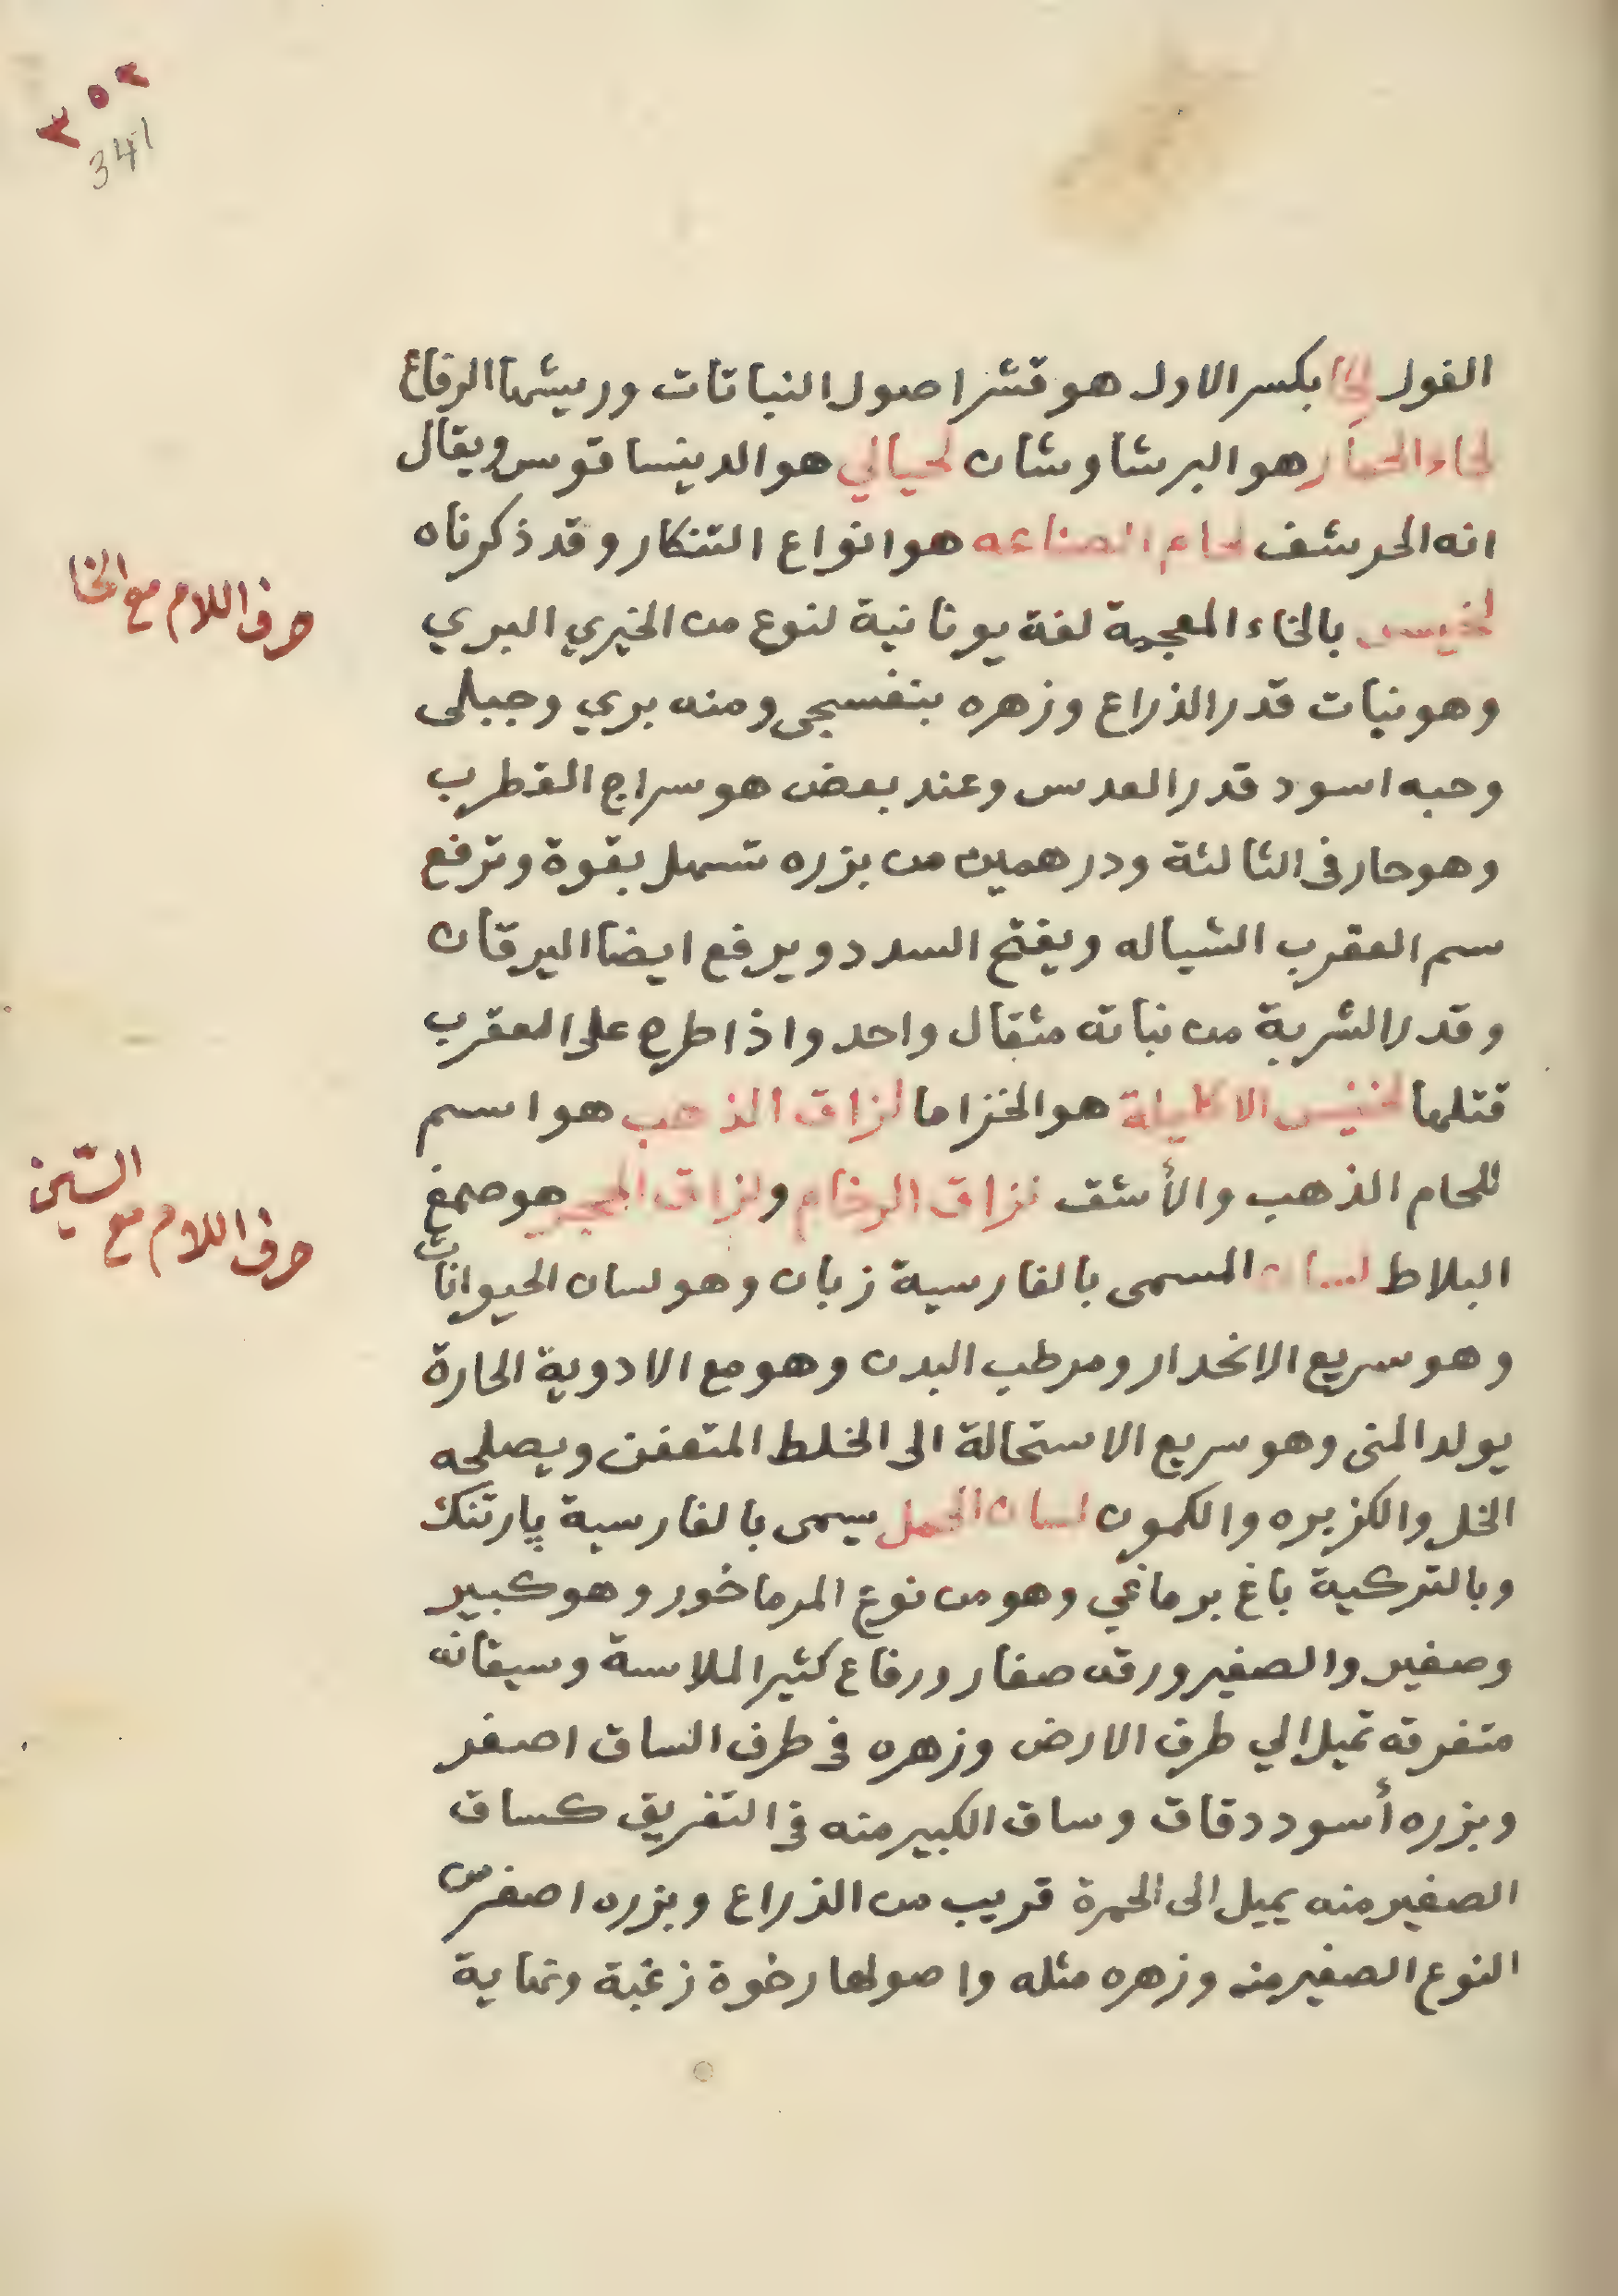 ٣٥٢
341
الغول لحا بكسر الاول هو قشر اصول النباتات وريشها الرقاع
لحاء الحمار هو البرشاوشان لحيالي هو الدينساقوس ويقال
انه الحرشف لحام الصناعه هو انواع التنكار وقد ذكرناه
حرف اللام مع الخا
لخيس بالخاء المعجمة لغة يونانية لنوع من الخيري البري
وهو نبات قدر الذراع وزهره بنفسجى ومنه بري وجبلى
وحبه اسود قدر العدس وعند بعض هو سراج القطرب
وهو حار فى الثالثة ودرهمين من بزره تسهل بقوة وترفع
سم العقرب الشياله ويفتح السدد ويرفع ايضا اليرقان
وقدر الشربة من نباته مثقال واحد واذا طرح على العقرب
قتلها لخنيس الاكليلة هو الخزاما لزاق الذهب هو اسم
حرف اللام مع السّين
للحام الذهب والأشق لزاق الرخام ولزاق الحجر هو صمغ
البلاط لسان المسمى بالفارسية زبان وهو لسان الحيوانات
وهو سريع الانحدار ومرطب البدن وهو مع الادوية الحارة
يولد المنى وهو سريع الاستحالة الى الخلط المتعفن ويصلحه
الخل والكزبره والكمون لسان الحمل سيمى بالفارسية پارتنك
وبالتركية باغ برماغي وهو من نوع المرماخور وهو كبير
وصغير والصغير ورقه صغار ورقاع كثير الملاسة وسيقانه
متفرقه تميل الي طرف الارض وزهره فى طرف الساق اصفر
وبزره أسود دقاق وساق الكبير منه فى التفريق كساق
الصغير منه يميل الى الحمرة قريب من الذراع وبزره اصغر من
النوع الصغير منه وزهره مثله واصولها رخوة زغبة وتماية